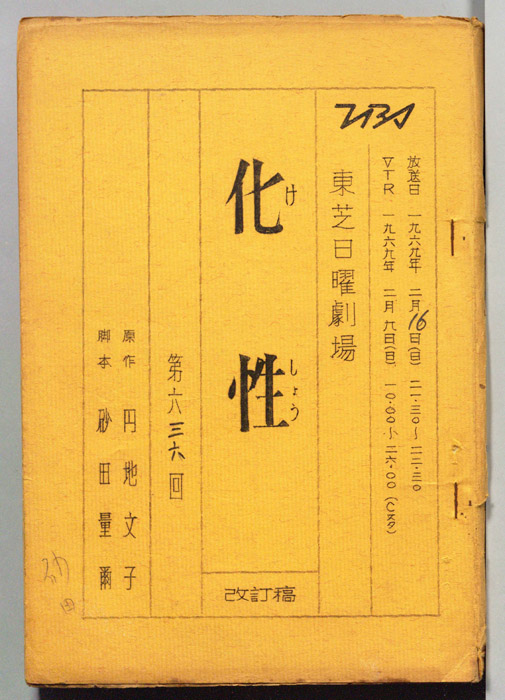 TBS
放送日 一九六九年 二月16日(日) 二一・三〇〜二二・三〇
VTR 一九六九年 二月九日(日) 一〇・〇〇〜二六・〇〇(Cスタ)
東芝日曜劇場
化性
けしょう
改訂稿
第六三六回
原作 円地文子
脚本 砂田量爾